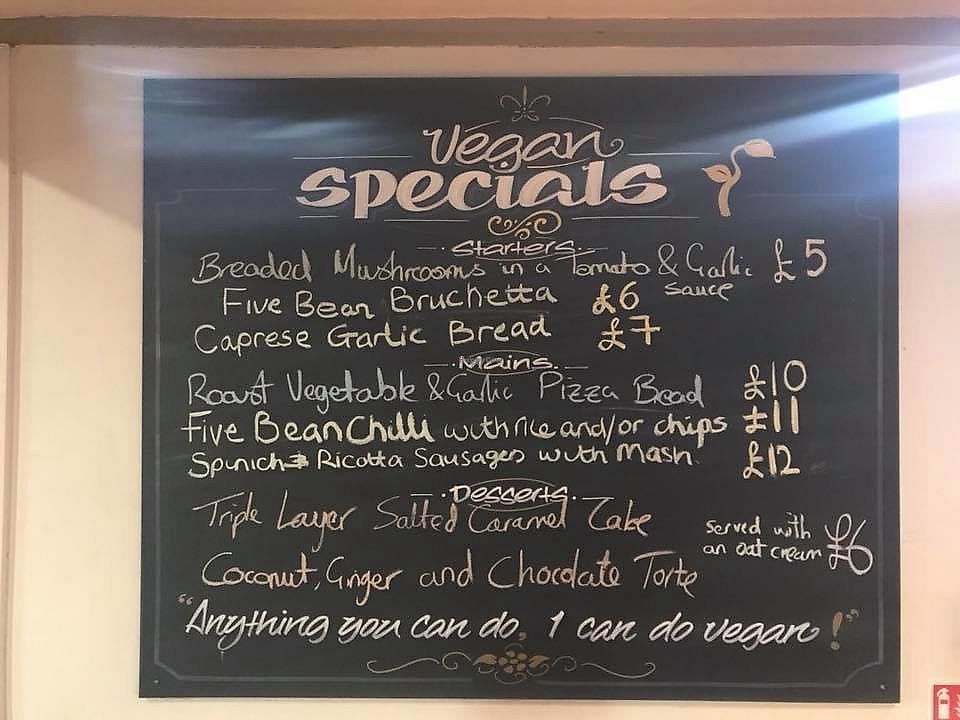 Vegan
specials
Starters
Breaded Mushrooms in a Tomato & Garlic £5
sauce
Five Bean Bruchetta £6
Caprese Garlic Bread £7
Mains
Roast Vegetable & Garlic Pizza Bread £10
Five Bean Chilli with rice and/or chips £11
Spinich & Ricotta Sausages with Mash £12
Desserts
Triple Layer Salted Caramel Cake
served with
an oat cream £6
Coconut, Ginger and Chocolate Torte
"Anything you can do, I can do vegan!"